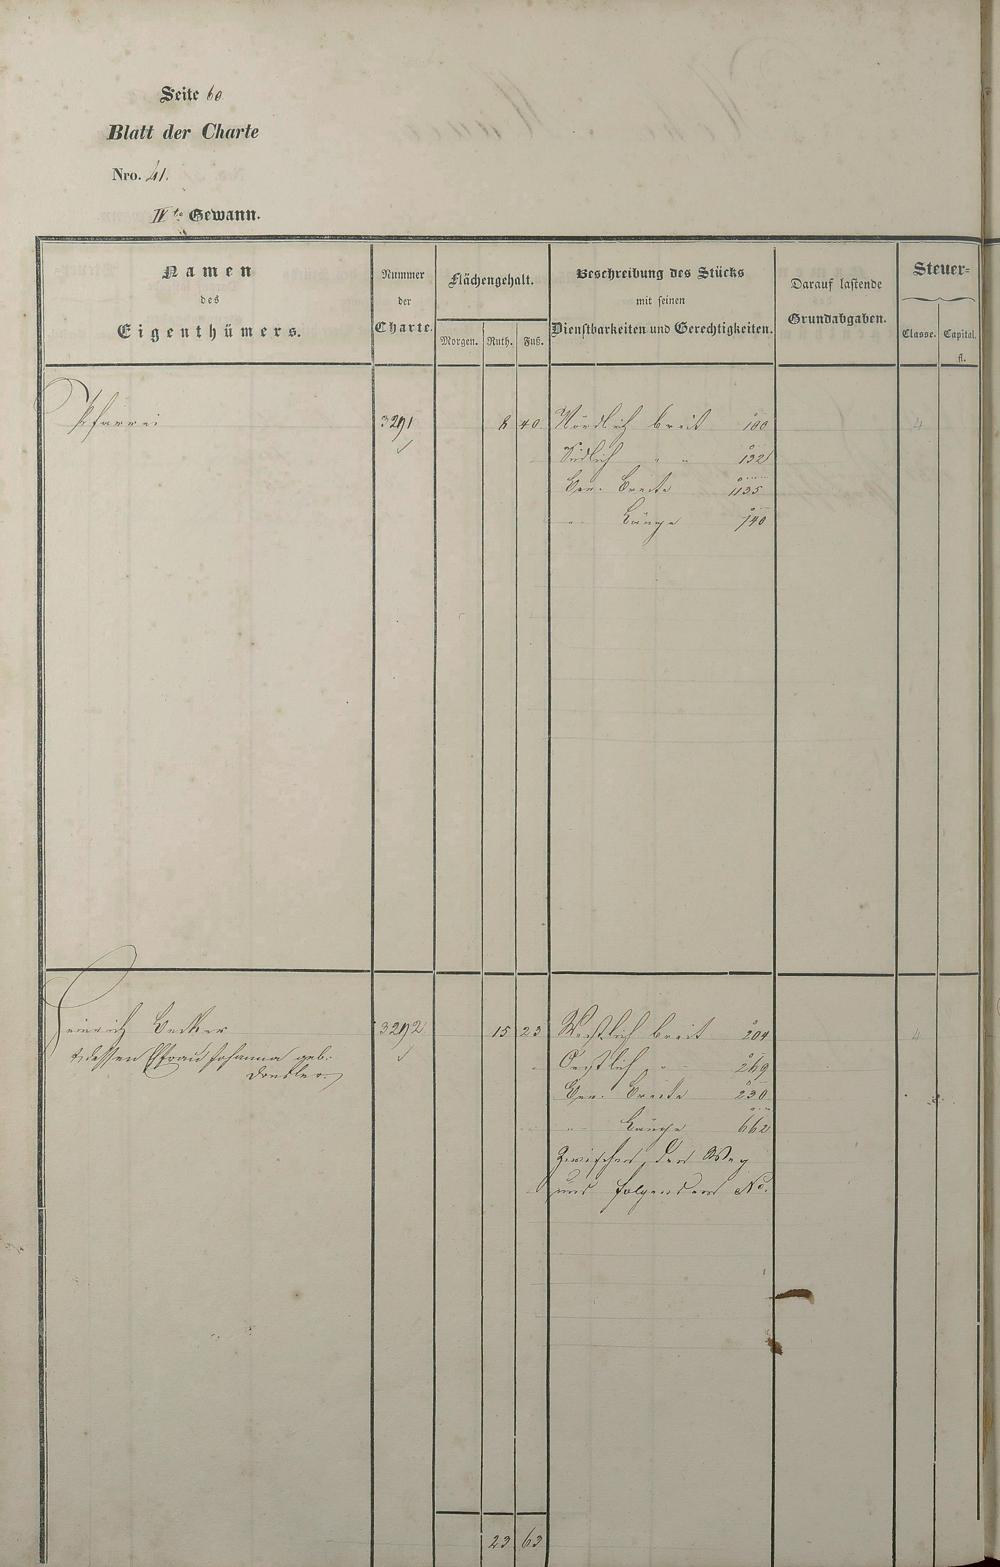 Seite 60
Blatt der Charte
Nro. 41.
IVte Gewann.
Namen
des
Eigenthümers.
Nummer
der
Charte.
Flächengehalt.
Morgen. Ruth. Fuß.
Beschreibung des Stücks
mit seinen
Dienstbarkeiten und Gerechtigkeiten.
Darauf lastende
Grundabgaben.
Steuer=
Classe. Capital.
fl.
Pfarrei 3291 8 40 Nördlich breit 100 4
Südlich " " 132
Gem. Breite 1135
" Länge 740
Heinrich Becker 3292 15 23 Westlich breit 204 4
& dessen Efrau Johanna geb: Oestlich " 269
Gem. Breite 230
" Länge 662
Zwischen dem Weg
und folgendem No.
23 63